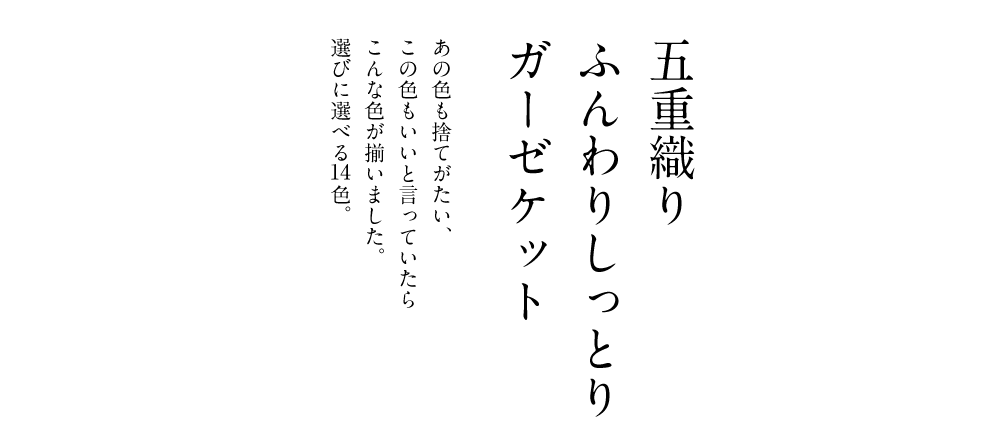 五重織り
ふんわりしっとり
ガーゼケット
あの色も捨てがたい、
この色もいいと言っていたら
こんな色が揃いました。
選びに選べる14色。